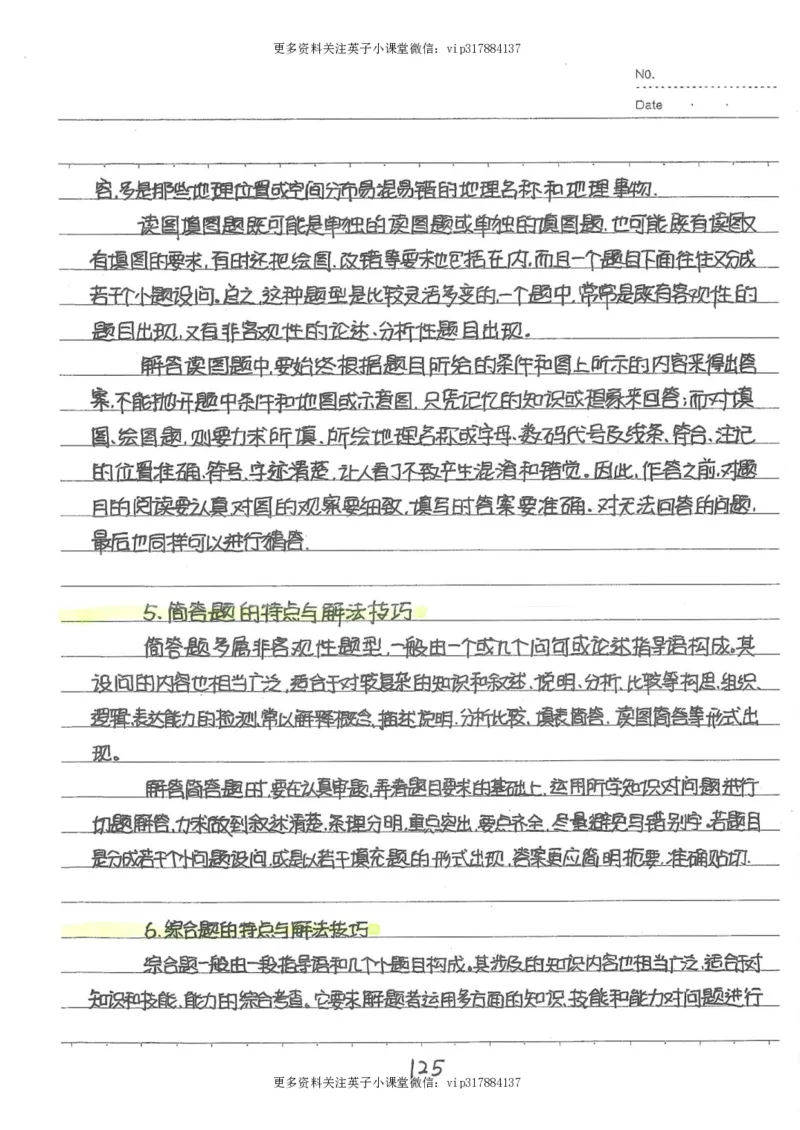 更多资料关注英子小课堂微信：vip317884137
NO.
Date
容，多是那些地理位置或空间分布易混易错的地理名称和地理事物.
读图填图题既可能是单独的读图题或单独的填图题，也可能既有读图又
有填图的要求，有时还把绘图、改错等要求也包括在内，而且一个题目下面往往又分成
若干个小题设问。总之，这种题型是比较灵活多变的，一个题中，常常是既有客观性的
题目出现，又有非客观性的论述、分析性题目出现。
解答读图题中，要始终根据题目所给的条件和图上所示的内容来得出答
案，不能抛开题中条件和地图或示意图，只凭记忆的知识或想象来回答；而对填
图、绘图题，则要力求所填、所绘地理名称或字母、数码代号及线条、符合、注记
的位置准确、符号、字迹清楚，让人看了不致产生混淆和错觉。因此，作答之前，对题
目的阅读要认真对图的观察要细致，填写时答案要准确。对无法回答的问题，
最后也同样可以进行猜答.
5.简答题的特点与解法技巧
简答题多属非客观性题型，一般由一个或几个问句或论述指导语构成。其
设问的内容也相当广泛，适合于对较复杂的知识和叙述、说明、分析、比较等构思、组织、
逻辑、表达能力的检测，常以解释概念、描述说明、分析比较、填表简答、读图简答等形式出
现。
解答简答题时，要在认真审题，弄清题目要求的基础上，运用所学知识对问题进行
切题解答，力求做到叙述清楚，条理分明，重点突出，要点齐全，尽量避免写错别字。若题目
是分成若干个小问题设问，或是以若干填充题的形式出现，答案更应简明扼要，准确贴切.
6.综合题的特点与解法技巧
综合题一般由一段指导语和几个小题目构成。其涉及的知识内容也相当广泛，适合于对
知识和技能、能力的综合考查。它要求解题者运用多方面的知识、技能和能力对问题进行
125
更多资料关注英子小课堂微信：vip317884137